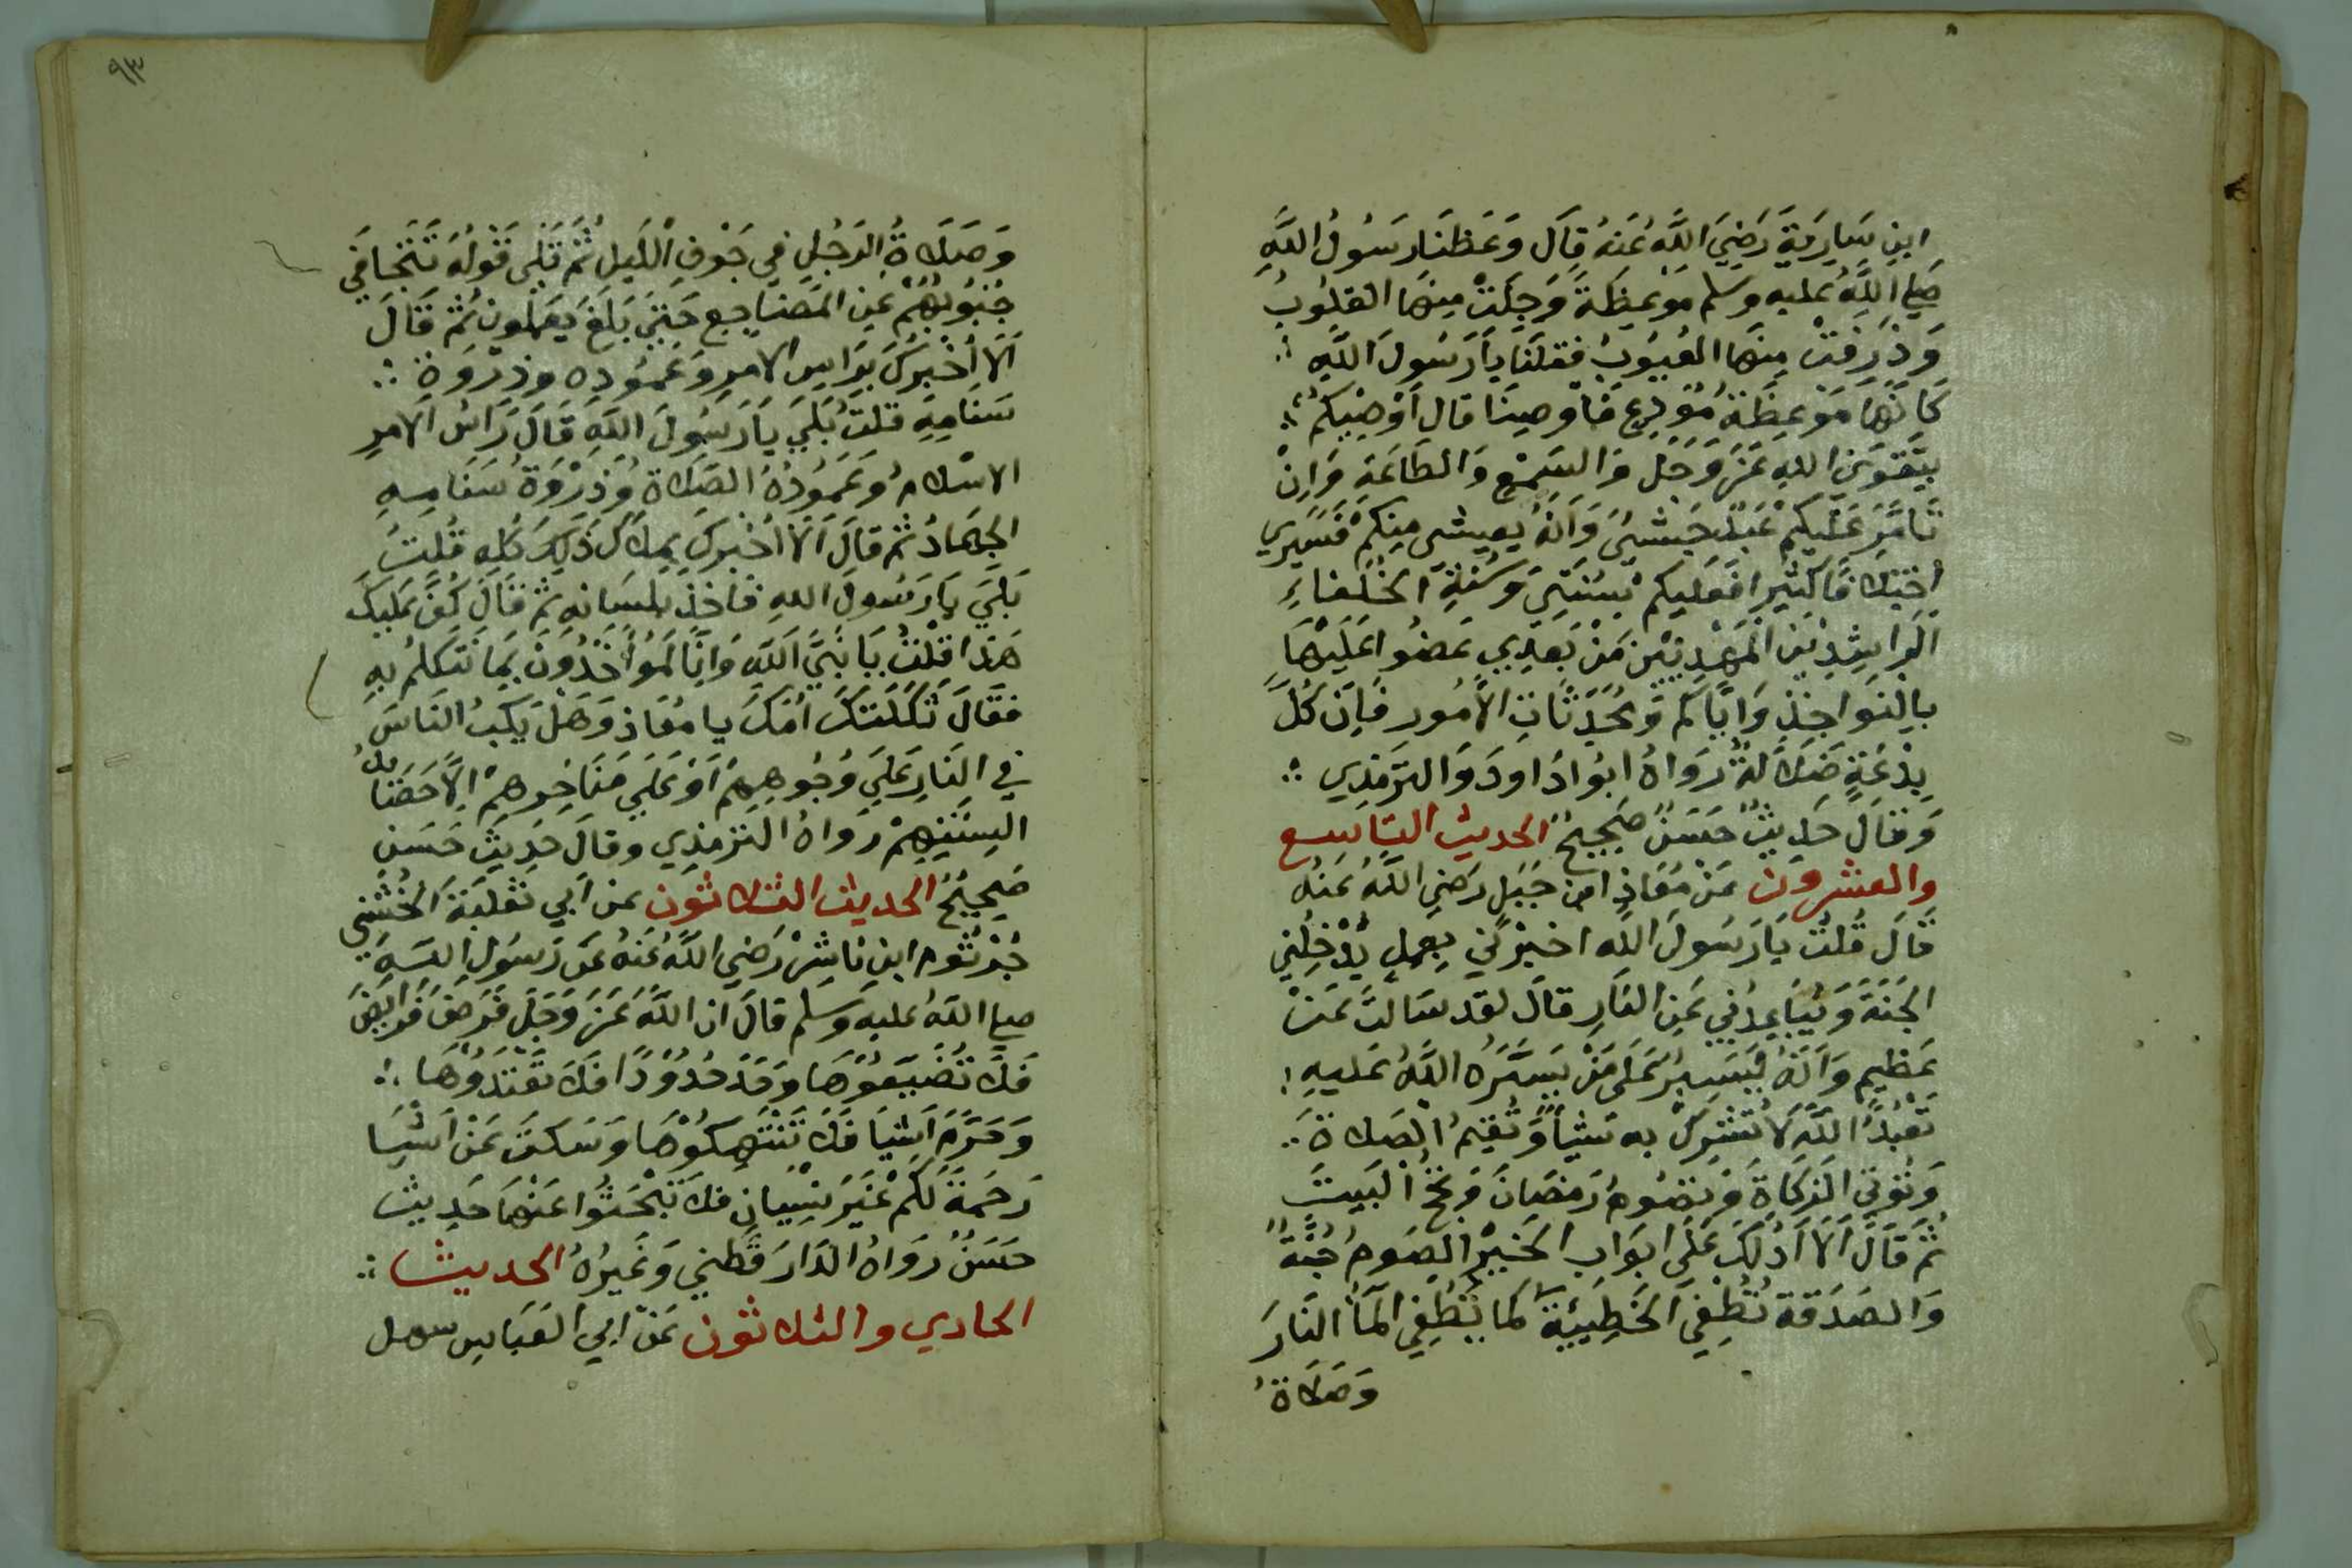 ابنِ سَارِيَةَ رَضِيَ اللَّهُ عَنهُ قَالَ وَعَظنَا رَسُولُ اللَّهِ
صَلى اللَّهُ عليه وسلم مَوْعِظَةً وَجِلَتْ مِنهَا القلُوبُ
وَذَرَفَتْ مِنهَا العُيُوبُ فقلنَا يَا رَسُولَ اللَّهِ
كَانَهَا مَوْعِظَةُ مُوَدِعٍ فَاَوصِينَا قال اَوْصِيكُم
بِتَقوَى اللهِ عَزَ وَجَل وَالسَمْعِ وَالطَاعَةِ وَاِنْ
تَامَّرَ عَلَيكُم عَبدٌ حَبَشيٌ وَاَنهُ يعِيش مِنكُم فَسَيَرَى
اختِلَافًا كَثيِرًا فَعَليكم بسُنَتِي وَسُنةِ الخُلَفاءِ
الَراشِدِينَ المَهدِيِينَ مَنْ بَعدِي عَضُوا عَلَيهَا
بِالنَواجِذِ وَاِيَّاكم وَمُحدَثَاتِ الاُمُور فَاِنَ كُلَ
بِدْعَةٍ ضَلَالَةٌ رَوَاهُ ابُوا دَاودَ وَالتِرمَذِي
وَقالَ حَدِيثٌ حَسَنٌ صَحِيحٌ الحديث التَاسع
والعشرون عَنْ مُعَاذِ ابن جَبَلٍ رَضِيَ اللَّهُ عَنهُ
قَالَ قُلتُ يَا رَسُولَ اللَّه اخبِرْنِي بِعمَلٍ يُدْخِلُنِي
الجَنَةَ وَيُبَاعِدُنِي عَنِ النَارِ قالَ لقد سَالتَ عَنْ
عَظِيمٍ وَاَنَهُ لَيَسِيرٌ عَلَى مَنْ يَسَّرَهُ اللَّهُ عَليهِ
تَعْبُدُ اللَّهَ لَا تُشرِكُ بِه شيْاً وَتُقيِمُ الصَلاةَ
وَتُوتِي الزَكَاةَ وَتصُومُ رَمَضَانَ وَتحُجُ البَيتَ
ثُمَ قَالَ اَلَا اَدُلكَ عَلَى ابوَابِ الخَيرِ الصَومُ جُنَّةٌ
وَالصَدَقَة تُطفِي الخَطِيَئةَ كَما يُطفِي المَاُ النَارَ
وَصَلَاةُ
٩٣
وَصَلَاةُ الرَجُلِ فِي جَوْفِ اللَيلِ ثُمَ تَلَى قَوْلُهُ تَتَجَافَى
جُنُوبُهُمْ عَنِ المَضاجِع حَتىَ بَلَغَ يَعملون ثم قَالَ
اَلَا اُخْبرُكَ بِرَاسِ الامرِ وَعَمُودِهِ وَذِروَة
سَنَامِهِ قلتُ بَلَى يَا رَسُولَ اللَّهِ قَالَ رَاسُ الاَمرِ
الاسْلامُ وَعَمُودُهُ الصَلَاة وَذِرْوَةُ سَنَامِهِ
الجِهَادُ ثُمَ قالَ اَلَا اُخبِركَ بِمِلَاكِ ذَلِكَ كُلِهِ قُلتُ
بَلَى يَا رَسُولَ اللهِ فَاخَذ بلِسَانِه ثمَ قَالَ كُفَ عَليكَ
هَذَا قلتُ يَا نَبيَّ اللَّهِ وَانَّا لَمُؤاخَذُونَ بِمَا نَتكلمُ بِهِ
فقَالَ ثَكَلَتكَ اُمكَ يا مُعَاذ وَهَل يَكبُ النَاسَ
فِي النَارِ عَلَى وُجُوهِهِمْ اَوْ عَلَى مَنَاخِرهِمْ اِلَّا حَصَايدُ
السِنَتِهِمْ رَوَاهُ التِرْمِذِي وقالَ حَدِيث حَسَن
صَحِيحٌ الحديث الثلاثون عن اَبي ثَعلَبَةَ الخُشَنِي
جُرْثُوم ابنِ نَاشِر رَضِيَ اللَّهُ عَنهُ عَن رَسُولِ اللهِ
صلى اللَّهُ عليه وسلم قالَ ان اللَّهَ عَزَ وَجَل فَرَضَ فَرَايضَ
فَلَا تُضَيعُوهَا وَحَدَ حُدُودًا فَلَا تَعْتَدُوْهَا
وَحَرَّمَ اَشيَا فَلَا تَنْتَهِكُوْهَا وَسَكتَ عَنْ اَشْيَا
رَحمَةً لَكُمْ غَيْرَ نِسْيَانٍ فلَا تَبْحَثُوا عَنْهَا حَدِيث
حَسَنٌ رَوَاهُ الدَارَقُطنِي وَغَيرُهُ الحديث
الحادي والثلاثون عَنْ ابي العَبَاسِ سهل